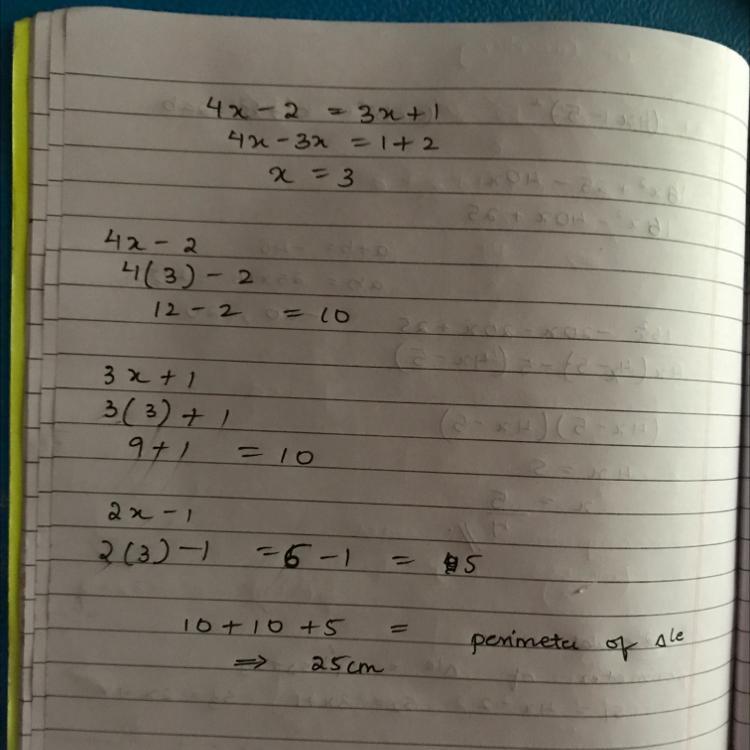 4x - 2 = 3x + 1
4x - 3x = 1 + 2
x = 3
4x - 2
4(3) - 2
12 - 2 = 10
3x + 1
3(3) + 1
9 + 1 = 10
2x - 1
2(3) - 1 = 6 - 1 = 5
10 + 10 + 5 = perimeter of Δle
⇒ 25cm